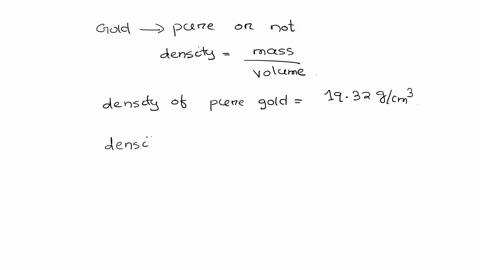 Gold → pure or not
density = mass / volume
density of pure gold = 19.32 g/cm³
densi